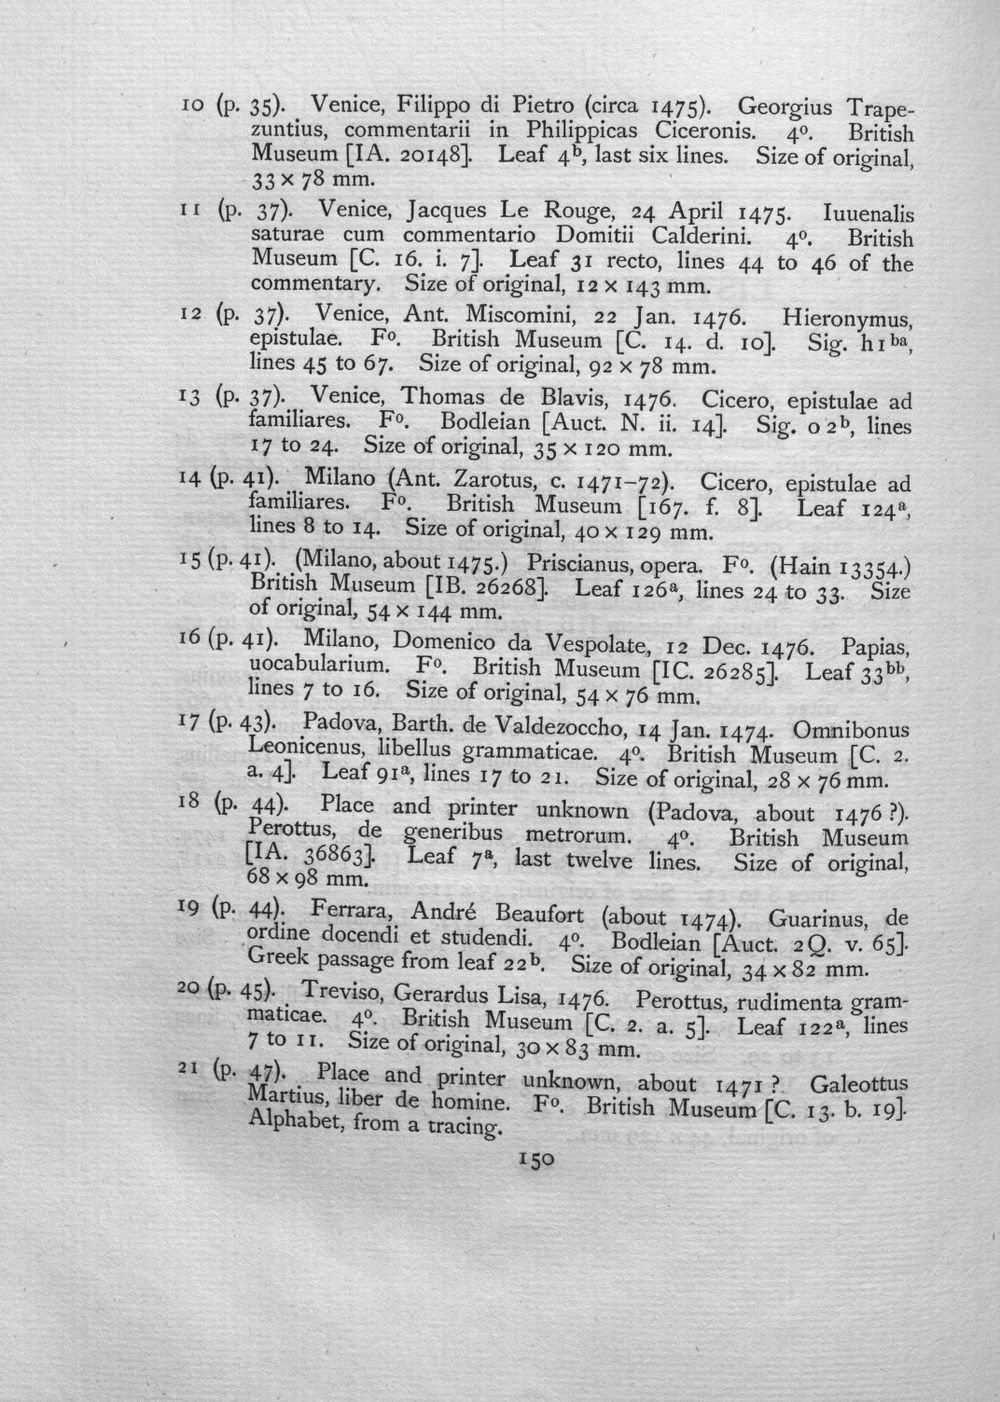 10 (p. 35). Venice, Filippo di Pietro (circa 1475). Georgius Trape-
zuntius, commentarii in Philippicas Ciceronis. 4º. British
Museum [IA. 20148]. Leaf 4ᵇ, last six lines. Size of original,
33 × 78 mm.
11 (p. 37). Venice, Jacques Le Rouge, 24 April 1475. Iuuenalis
saturae cum commentario Domitii Calderini. 4º. British
Museum [C. 16. i. 7]. Leaf 31 recto, lines 44 to 46 of the
commentary. Size of original, 12 × 143 mm.
12 (p. 37). Venice, Ant. Miscomini, 22 Jan. 1476. Hieronymus,
epistulae. Fº. British Museum [C. 14. d. 10]. Sig. h1ᵇᵃ,
lines 45 to 67. Size of original, 92 × 78 mm.
13 (p. 37). Venice, Thomas de Blavis, 1476. Cicero, epistulae ad
familiares. Fº. Bodleian [Auct. N. ii. 14]. Sig. o2ᵇ, lines
17 to 24. Size of original, 35 × 120 mm.
14 (p. 41). Milano (Ant. Zarotus, c. 1471–72). Cicero, epistulae ad
familiares. Fº. British Museum [167. f. 8]. Leaf 124ᵃ,
lines 8 to 14. Size of original, 40 × 129 mm.
15 (p. 41). (Milano, about 1475.) Priscianus, opera. Fº. (Hain 13354.)
British Museum [IB. 26268]. Leaf 126ᵃ, lines 24 to 33. Size
of original, 54 × 144 mm.
16 (p. 41). Milano, Domenico da Vespolate, 12 Dec. 1476. Papias,
uocabularium. Fº. British Museum [IC. 26285]. Leaf 33ᵇᵇ,
lines 7 to 16. Size of original, 54 × 76 mm.
17 (p. 43). Padova, Barth. de Valdezoccho, 14 Jan. 1474. Omnibonus
Leonicenus, libellus grammaticae. 4º. British Museum [C. 2.
a. 4]. Leaf 91ᵃ, lines 17 to 21. Size of original, 28 × 76 mm.
18 (p. 44). Place and printer unknown (Padova, about 1476?).
Perottus, de generibus metrorum. 4º. British Museum
[IA. 36863]. Leaf 7ᵃ, last twelve lines. Size of original,
68 × 98 mm.
19 (p. 44). Ferrara, André Beaufort (about 1474). Guarinus, de
ordine docendi et studendi. 4º. Bodleian [Auct. 2Q. v. 65].
Greek passage from leaf 22ᵇ. Size of original, 34 × 82 mm.
20 (p. 45). Treviso, Gerardus Lisa, 1476. Perottus, rudimenta gram-
maticae. 4º. British Museum [C. 2. a. 5]. Leaf 122ᵃ, lines
7 to 11. Size of original, 30 × 83 mm.
21 (p. 47). Place and printer unknown, about 1471? Galeottus
Martius, liber de homine. Fº. British Museum [C. 13. b. 19].
Alphabet, from a tracing.
150